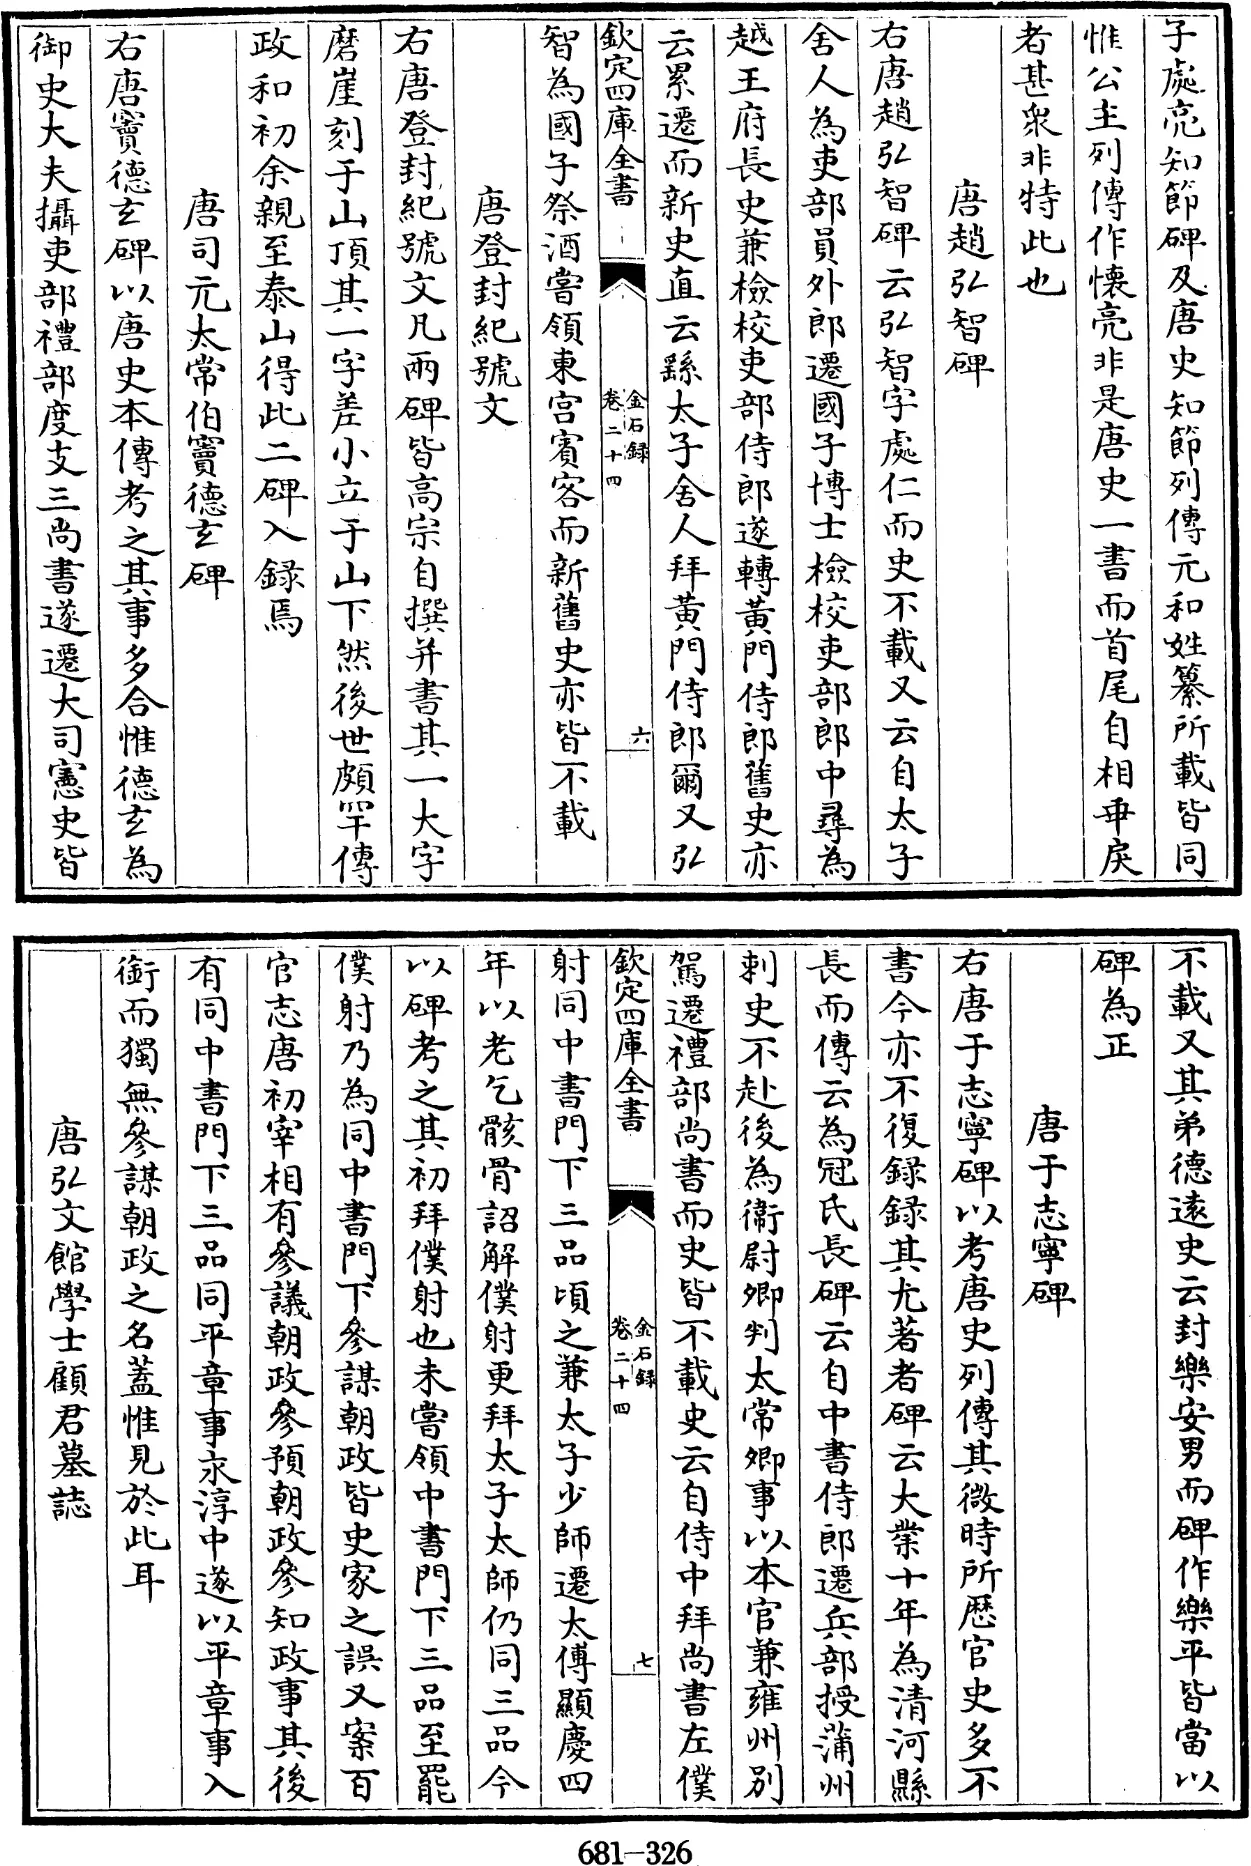 子處亮知節碑及唐史知節列傳元和姓纂所載皆同
惟公主列傳作懷亮非是唐史一書而首尾自相乖戾
者甚衆非特此也
唐趙弘智碑
右唐趙弘智碑云弘智字處仁而史不載又云自太子
舍人為吏部員外郎遷國子博士檢校吏部郎中尋為
越王府長史兼檢校吏部侍郎遂轉黄門侍郎舊史亦
云累遷而新史直云繇太子舍人拜黄門侍郎爾又弘
欽定四庫全書
金石録
卷二十四
六
智為國子祭酒嘗領東宫賓客而新舊史亦皆不載
唐登封紀號文
右唐登封紀號文凡兩碑皆高宗自撰并書其一大字
磨崖刻于山頂其一字差小立于山下然後世頗罕傳
政和初余親至泰山得此二碑入錄焉
唐司元太常伯竇德玄碑
右唐竇德玄碑以唐史本傳考之其事多合惟德玄為
御史大夫攝吏部禮部度支三尚書遂遷大司憲史皆
不載又其弟德遠史云封樂安男而碑作樂平皆當以
碑為正
唐于志寧碑
右唐于志寧碑以考唐史列傳其微時所歴官史多不
書今亦不復録録其尤著者碑云大業十年為清河縣
長而傳云為冠氏長碑云自中書侍郎遷兵部授蒲州
刺史不赴後為衞尉卿判太常卿事以本官兼雍州别
駕遷禮部尚書而史皆不載史云自侍中拜尚書左僕
欽定四庫全書
金石録
卷二十四
七
射同中書門下三品頃之兼太子少師遷太傅顯慶四
年以老乞骸骨詔解僕射更拜太子太師仍同三品今
以碑考之其初拜僕射也未嘗領中書門下三品至罷
僕射乃為同中書門下參謀朝政皆史家之誤又案百
官志唐初宰相有參議朝政參預朝政參知政事其後
有同中書門下三品同平章事永淳中遂以平章事入
銜而獨無參謀朝政之名蓋惟見於此耳
唐弘文館學士顧君墓誌
681-326